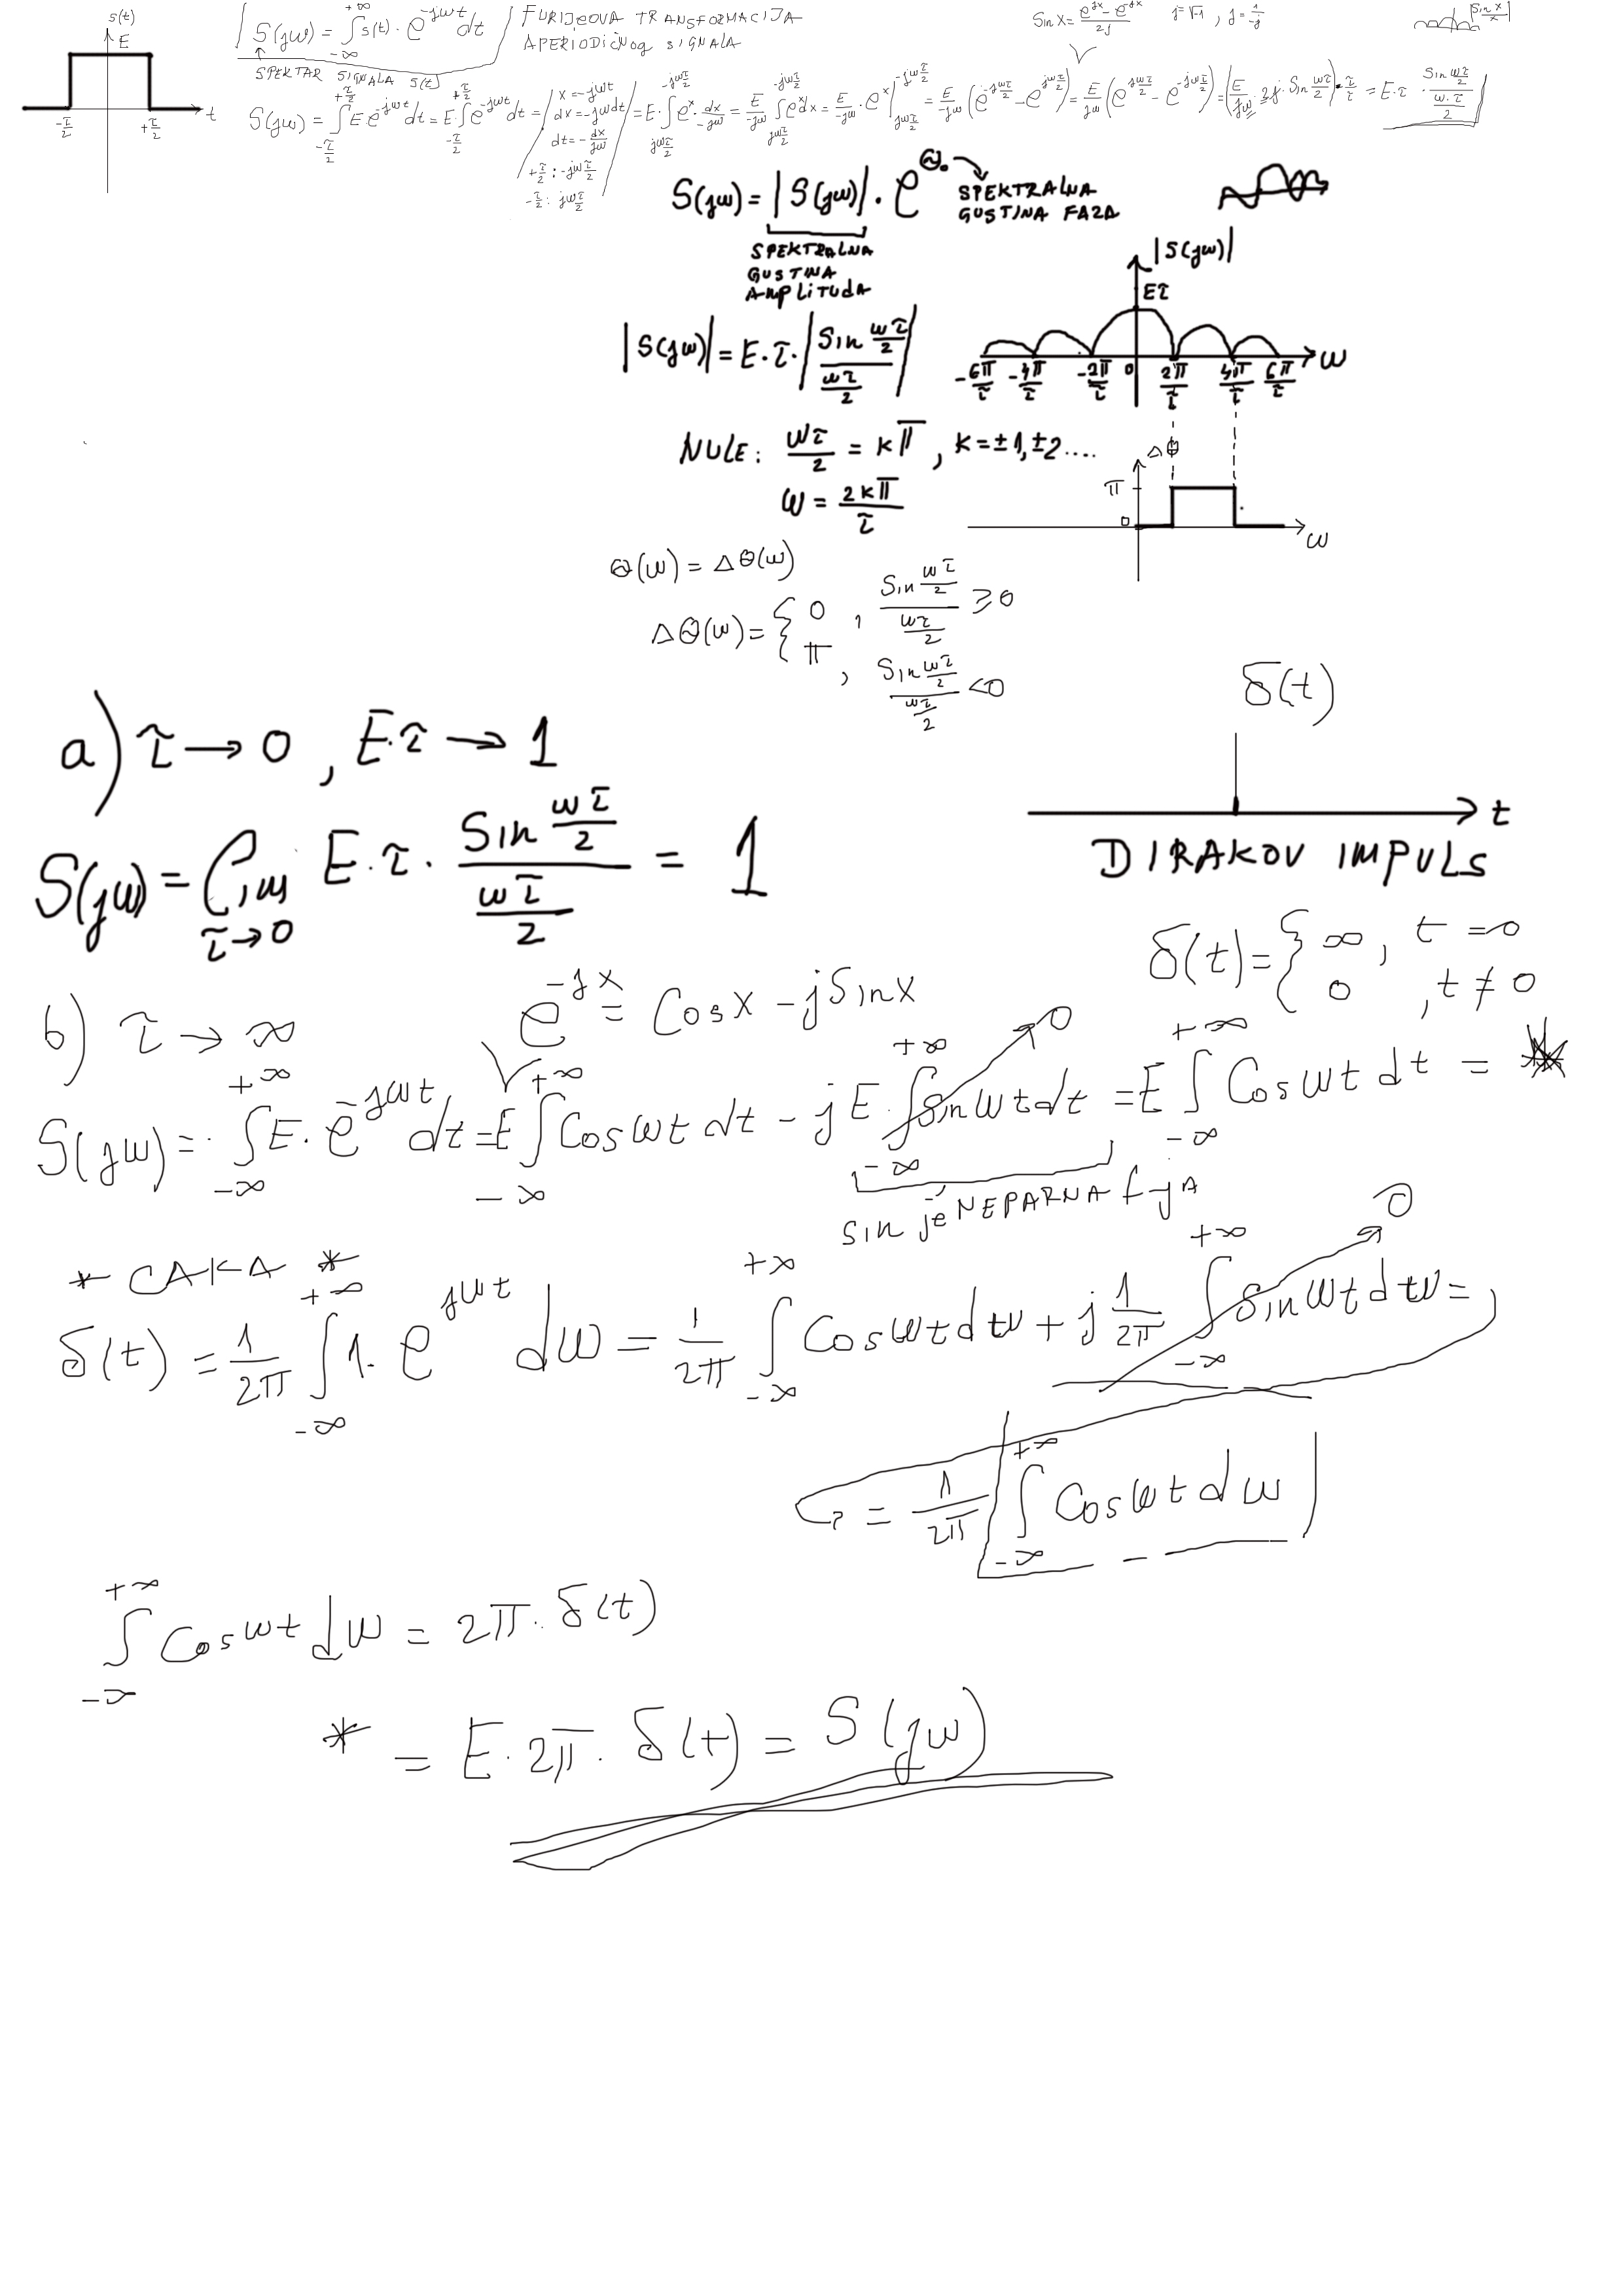 s(t)
E
-τ/2 +τ/2 t
S(jω) = ∫_{-∞}^{+∞} s(t) · e^{-jωt} dt
FURIJEOVA TRANSFORMACIJA
APERIODIČNOG SIGNALA
↑
SPEKTAR SIGNALA s(t)
Sin x = (e^{jx} - e^{-jx})/2j j=√-1 , j = 1/-j
|Sin x / x|
S(jω) = ∫_{-τ/2}^{+τ/2} E · e^{-jωt} dt = E·∫_{-τ/2}^{+τ/2} e^{-jωt} dt = / x = -jωt
dx = -jω dt
dt = -dx/jω
+τ/2 : -jωτ/2
-τ/2 : jωτ/2 / = E·∫_{jωτ/2}^{-jωτ/2} e^x · dx/-jω = E/-jω ∫_{jωτ/2}^{-jωτ/2} e^x dx = E/-jω · e^x |_{jωτ/2}^{-jωτ/2} = E/-jω (e^{-jωτ/2} - e^{jωτ/2}) = E/jω (e^{jωτ/2} - e^{-jωτ/2}) = (E/jω · 2j · Sin ωτ/2) · τ/τ = E·τ · (Sin ωτ/2)/(ω·τ/2)
S(jω) = |S(jω)| · e^{Θ.} → SPEKTRALNA
GUSTINA FAZA
SPEKTRALNA
GUSTINA
AMPLITUDA
|S(jω)|
Eτ
|S(jω)| = E·τ·|(Sin ωτ/2)/(ωτ/2)|
-6π/τ -4π/τ -2π/τ 0 2π/τ 4π/τ 6π/τ ω
NULE: ωτ/2 = kπ , k = ±1, ±2 ....
ω = 2kπ/τ
ΔΘ
π
0
ω
Θ(ω) = ΔΘ(ω)
ΔΘ(ω) = { 0 , (Sin ωτ/2)/(ωτ/2) ≥ 0
π , (Sin ωτ/2)/(ωτ/2) < 0
a) τ → 0 , E·τ → 1
S(jω) = lim_{τ→0} E·τ · (Sin ωτ/2)/(ωτ/2) = 1
δ(t)
t
DIRAKOV IMPULS
δ(t) = { ∞ , t = 0
0 , t ≠ 0
b) τ → ∞
e^{-jx} = Cos x - j Sin x
S(jω) = · ∫_{-∞}^{+∞} E · e^{-jωt} dt = E ∫_{-∞}^{+∞} Cos ωt dt - jE · ∫_{-∞}^{+∞} Sin ωt dt → 0 = E ∫_{-∞}^{+∞} Cos ωt dt = *
sin je NEPARNA f-ja
* CAKA *
δ(t) = 1/2π ∫_{-∞}^{+∞} 1 · e^{jωt} dω = 1/2π ∫_{-∞}^{+∞} Cos ωt dω + j 1/2π ∫_{-∞}^{+∞} Sin ωt dω → 0 =
= 1/2π ∫_{-∞}^{+∞} Cos ωt dω
∫_{-∞}^{+∞} Cos ωt dω = 2π · δ(t)
* = E · 2π · δ(t) = S(jω)